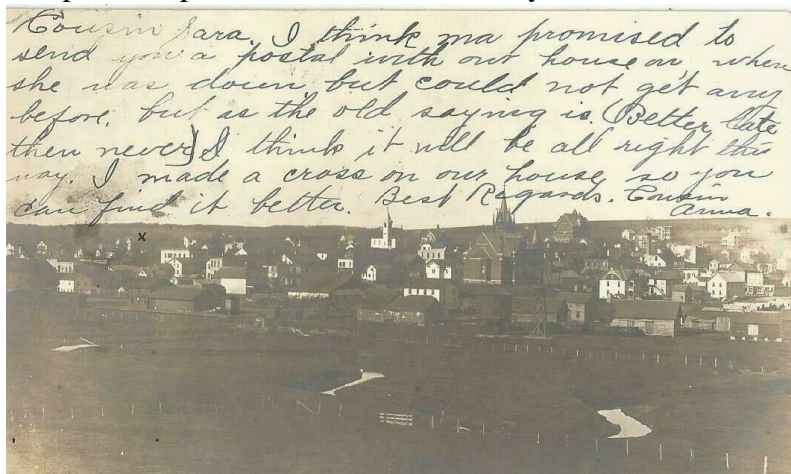 Cousin Sara. I think ma promised to
send you a postal with our house on when
she was down, but could not get any
before, but as the old saying is (Better late
then never) I think it will be all right this
way. I made a cross on our house so you
can find it better. Best Regards. Cousin
Anna.
x